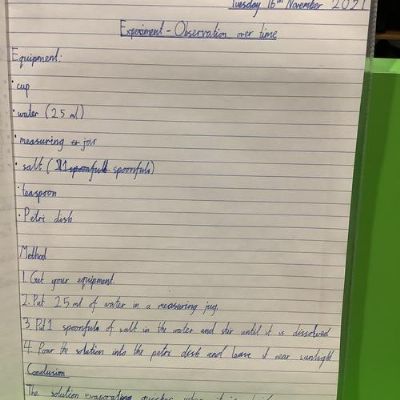 Tuesday 16th November 2021
Experiment - Observation over time
Equipment:
• cup
• water (25 ml)
• measuring jug
• salt (1 spoonfuls)
• teaspoon
• Petri dish
Method
1. Get your equipment.
2. Put 25 ml of water in a measuring jug.
3. Put 1 spoonfuls of salt in the water and stir until it is dissolved
4. Pour the solution into the petri dish and leave it near sunlight
Conclusion
The solution evaporating quicker when